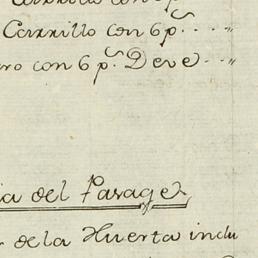 Carrillo con 6 p.s
Carrillo con 6 p.s . . . "
ro con 6 p.s Deve . . "
ia del Parage
de la Huerta inclu